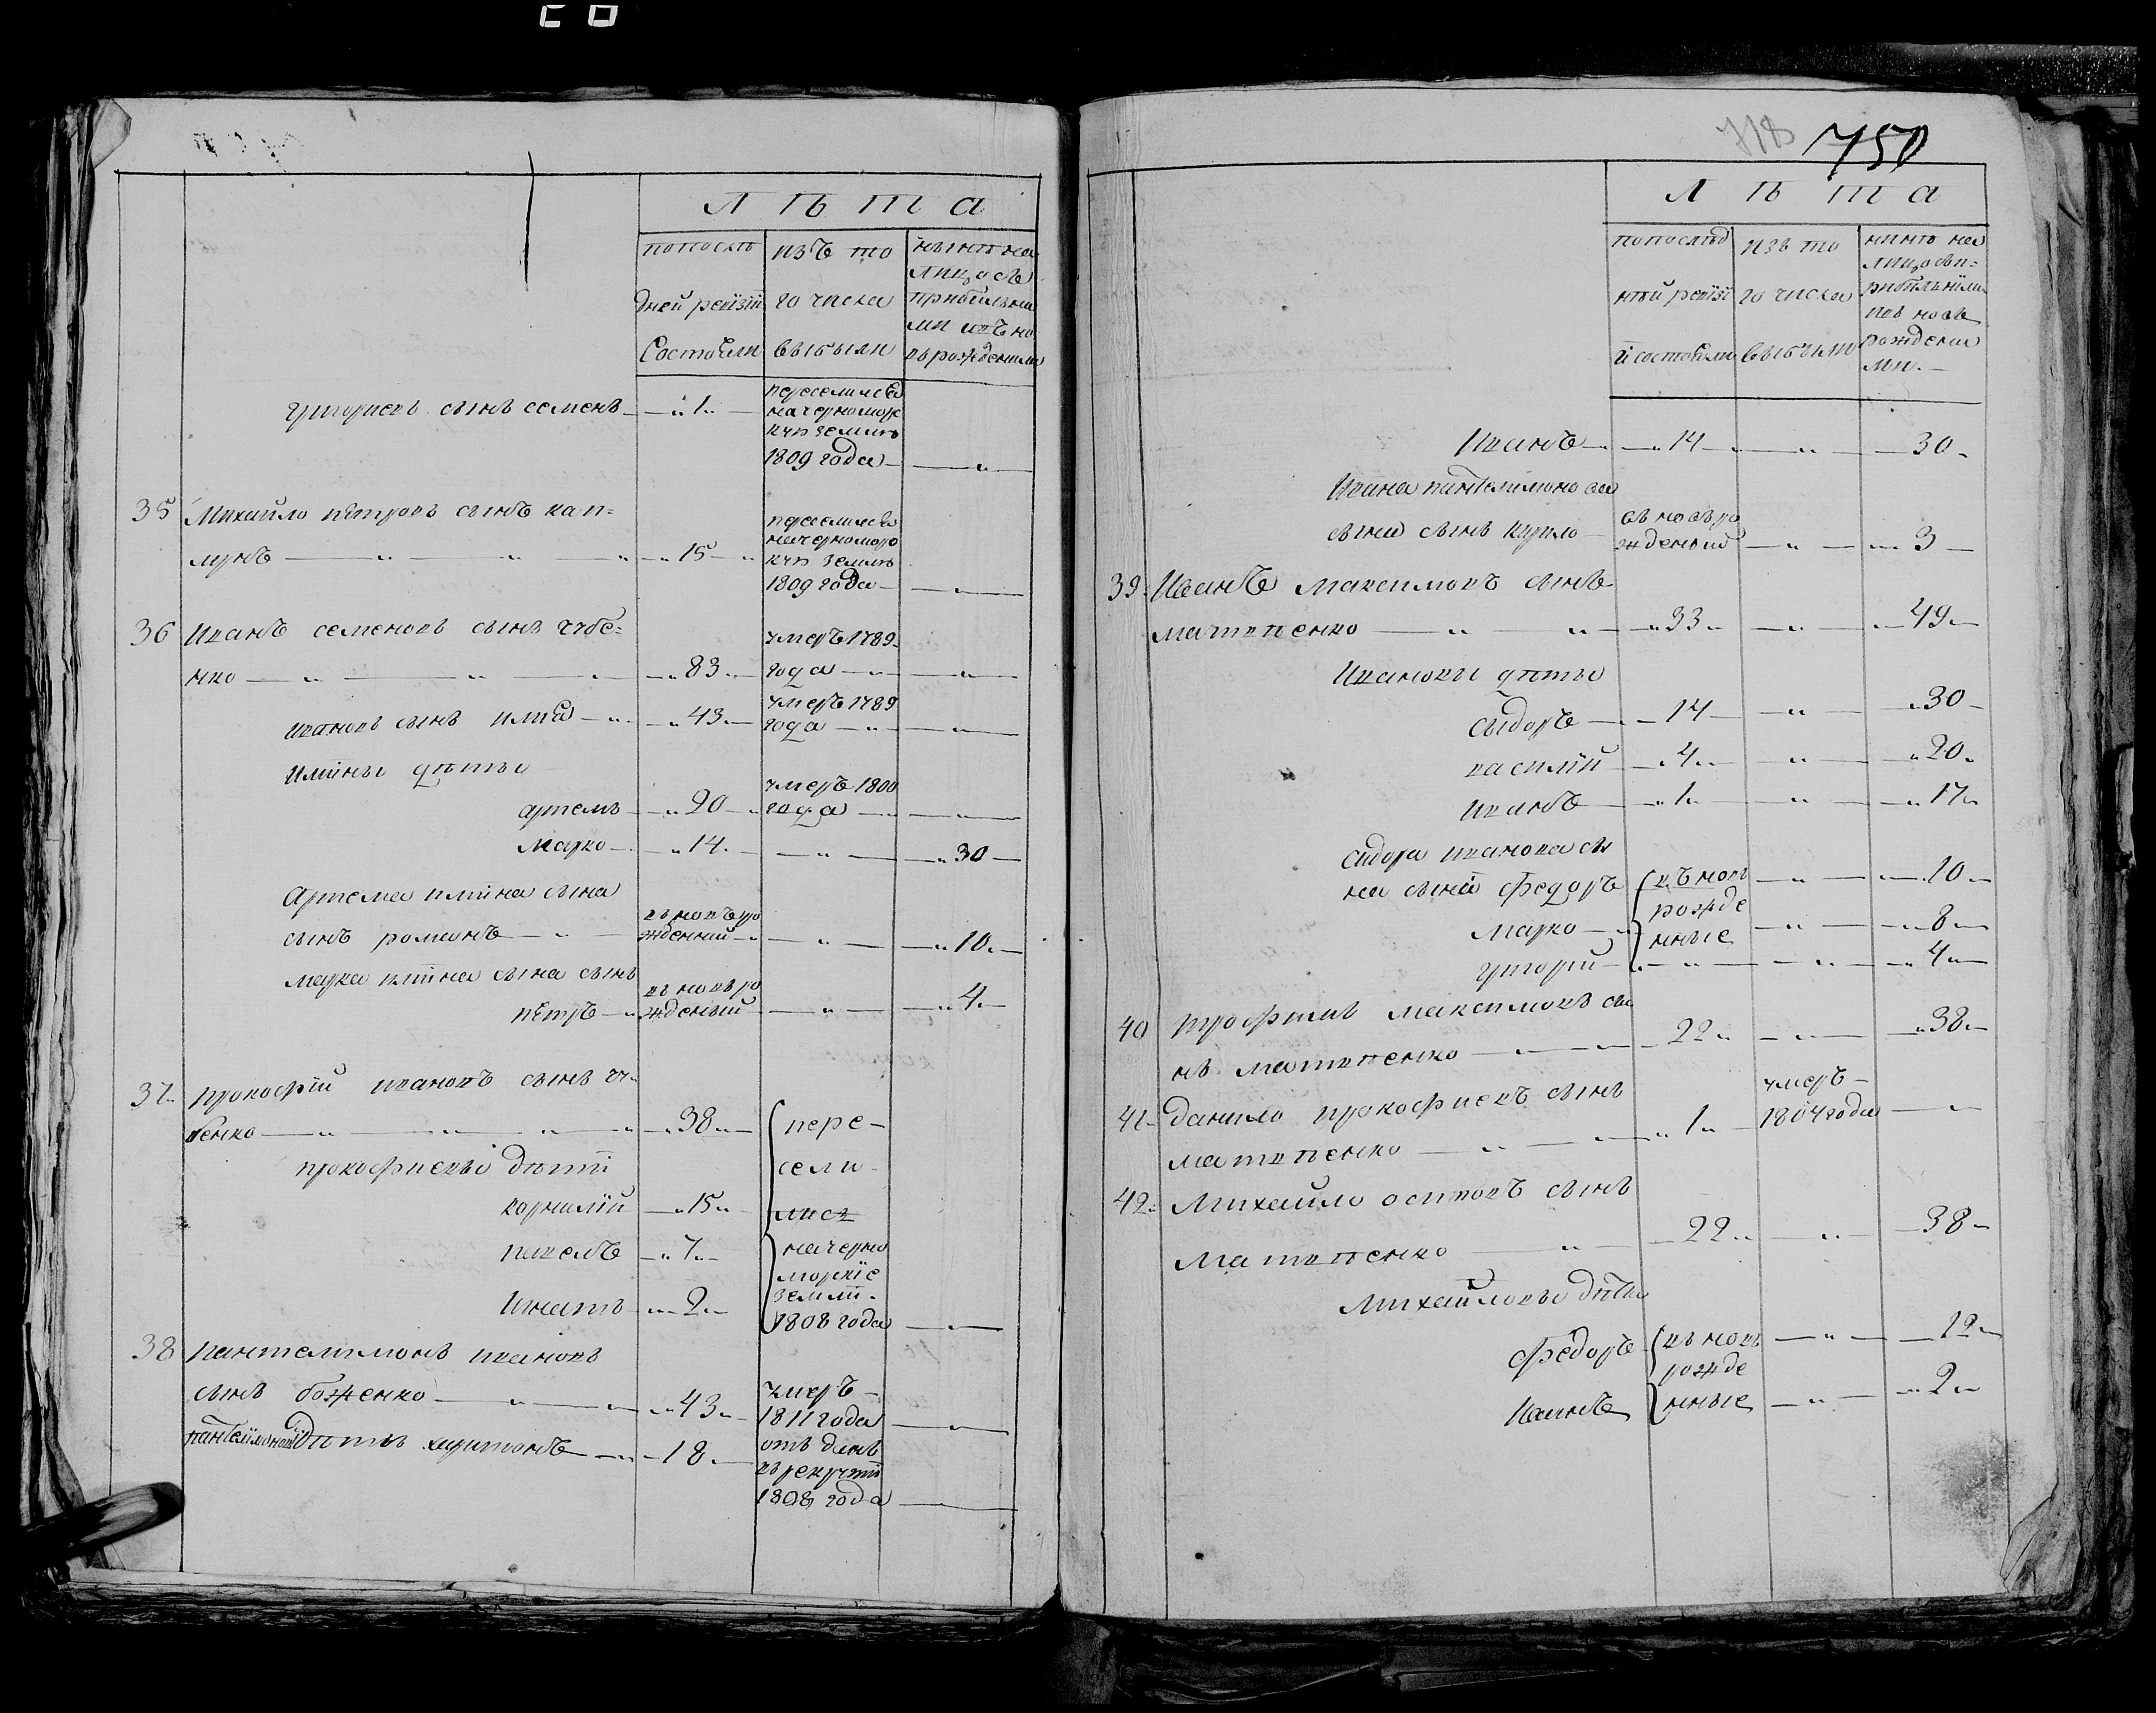 Л Ѣ Т А
попослѣ
дней ревізіи
состояли
изъ то
го числа
выбыли
нынѣ на
лицо съ
прибылы
ми и въ но
въ рожденными
григориевъ сынъ семенъ — 1
переселился
на черномор
кую землю
1809 года
35 Михайло петровъ сынъ кап=
лунъ — 15
переселился
на черномор
кую землю
1809 года
36 иванъ семеновъ сынъ чубе=
нко — 83
умеръ 1789
года
ивановъ сынъ илия — 43
умеръ 1789
года
илины дѣти
артемъ — 20
умеръ 1800
года
Марко — 14 — 30
артема илина сына
сынъ романъ — въ новъ ро
жденний — 10
марка илина сына сынъ
петръ — въ новъ ро
жденый — 4
37 прокофій ивановъ сынъ чу
бенко — 38
прокофиевы дѣти
корнилій — 15
павелъ — 7
игнатъ — 2
пере
сели
лися
на черно
морскіе
земли
1808 года
38 пантелимонъ ивановъ
сынъ боженко — 43
умеръ
1811 года
дѣти харитонъ — 18
отъ данъ
въ рекруты
1808 года
718 750
Л Ѣ Т А
попослѣд
ней ревізі
й состояли
изъ то
го числа
выбыли
нинѣ на
лицо съ п=
рибылыми
и въ новъ
рожденны
ми.
Иванъ — 14 — 30
Ивана пантелимонова
сына сынъ кирило — въ новъ ро
жденый — 3
39 Иванъ максимовъ сынъ
матвѣенко — 33 — 49
Ивановы дѣти
сидоръ — 14 — 30
василій — 4 — 20
иванъ — 1 — 17
сидора иванова сы
на сыны федоръ — въ новъ — 10
марко — рожде
нные — 8
григори — 4
40 трофимъ максимовъ сы
нъ матвѣенко — 22 — 38
41 данило прокофиевъ сынъ
матвѣенко — 1
умеръ
1804 года
42 Михайло осиповъ сынъ
матвѣенко — 22 — 38
Михайловы дѣти
федоръ — въ новъ — 12
рожде
Иванъ — нные — 2